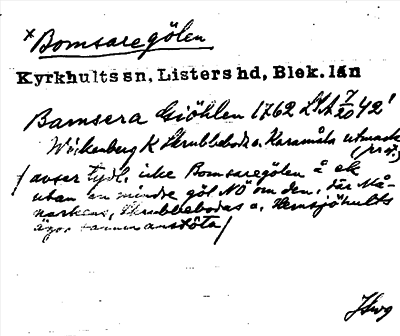 x Bomsaregölen
Kyrkhults sn, Listers hd, Blek. län
Bamsera Giöhlen 1762 LSA 7/20 42'
Wickenberg K Skrubbeboda o. Karamåla utmark
/avser tydl. icke Bomsaregölen å ek
utan en mindre göl NÖ om den, där Må-
narkens, Skrubbebodas o. Hemsjöhults
ägor sammanstöta/